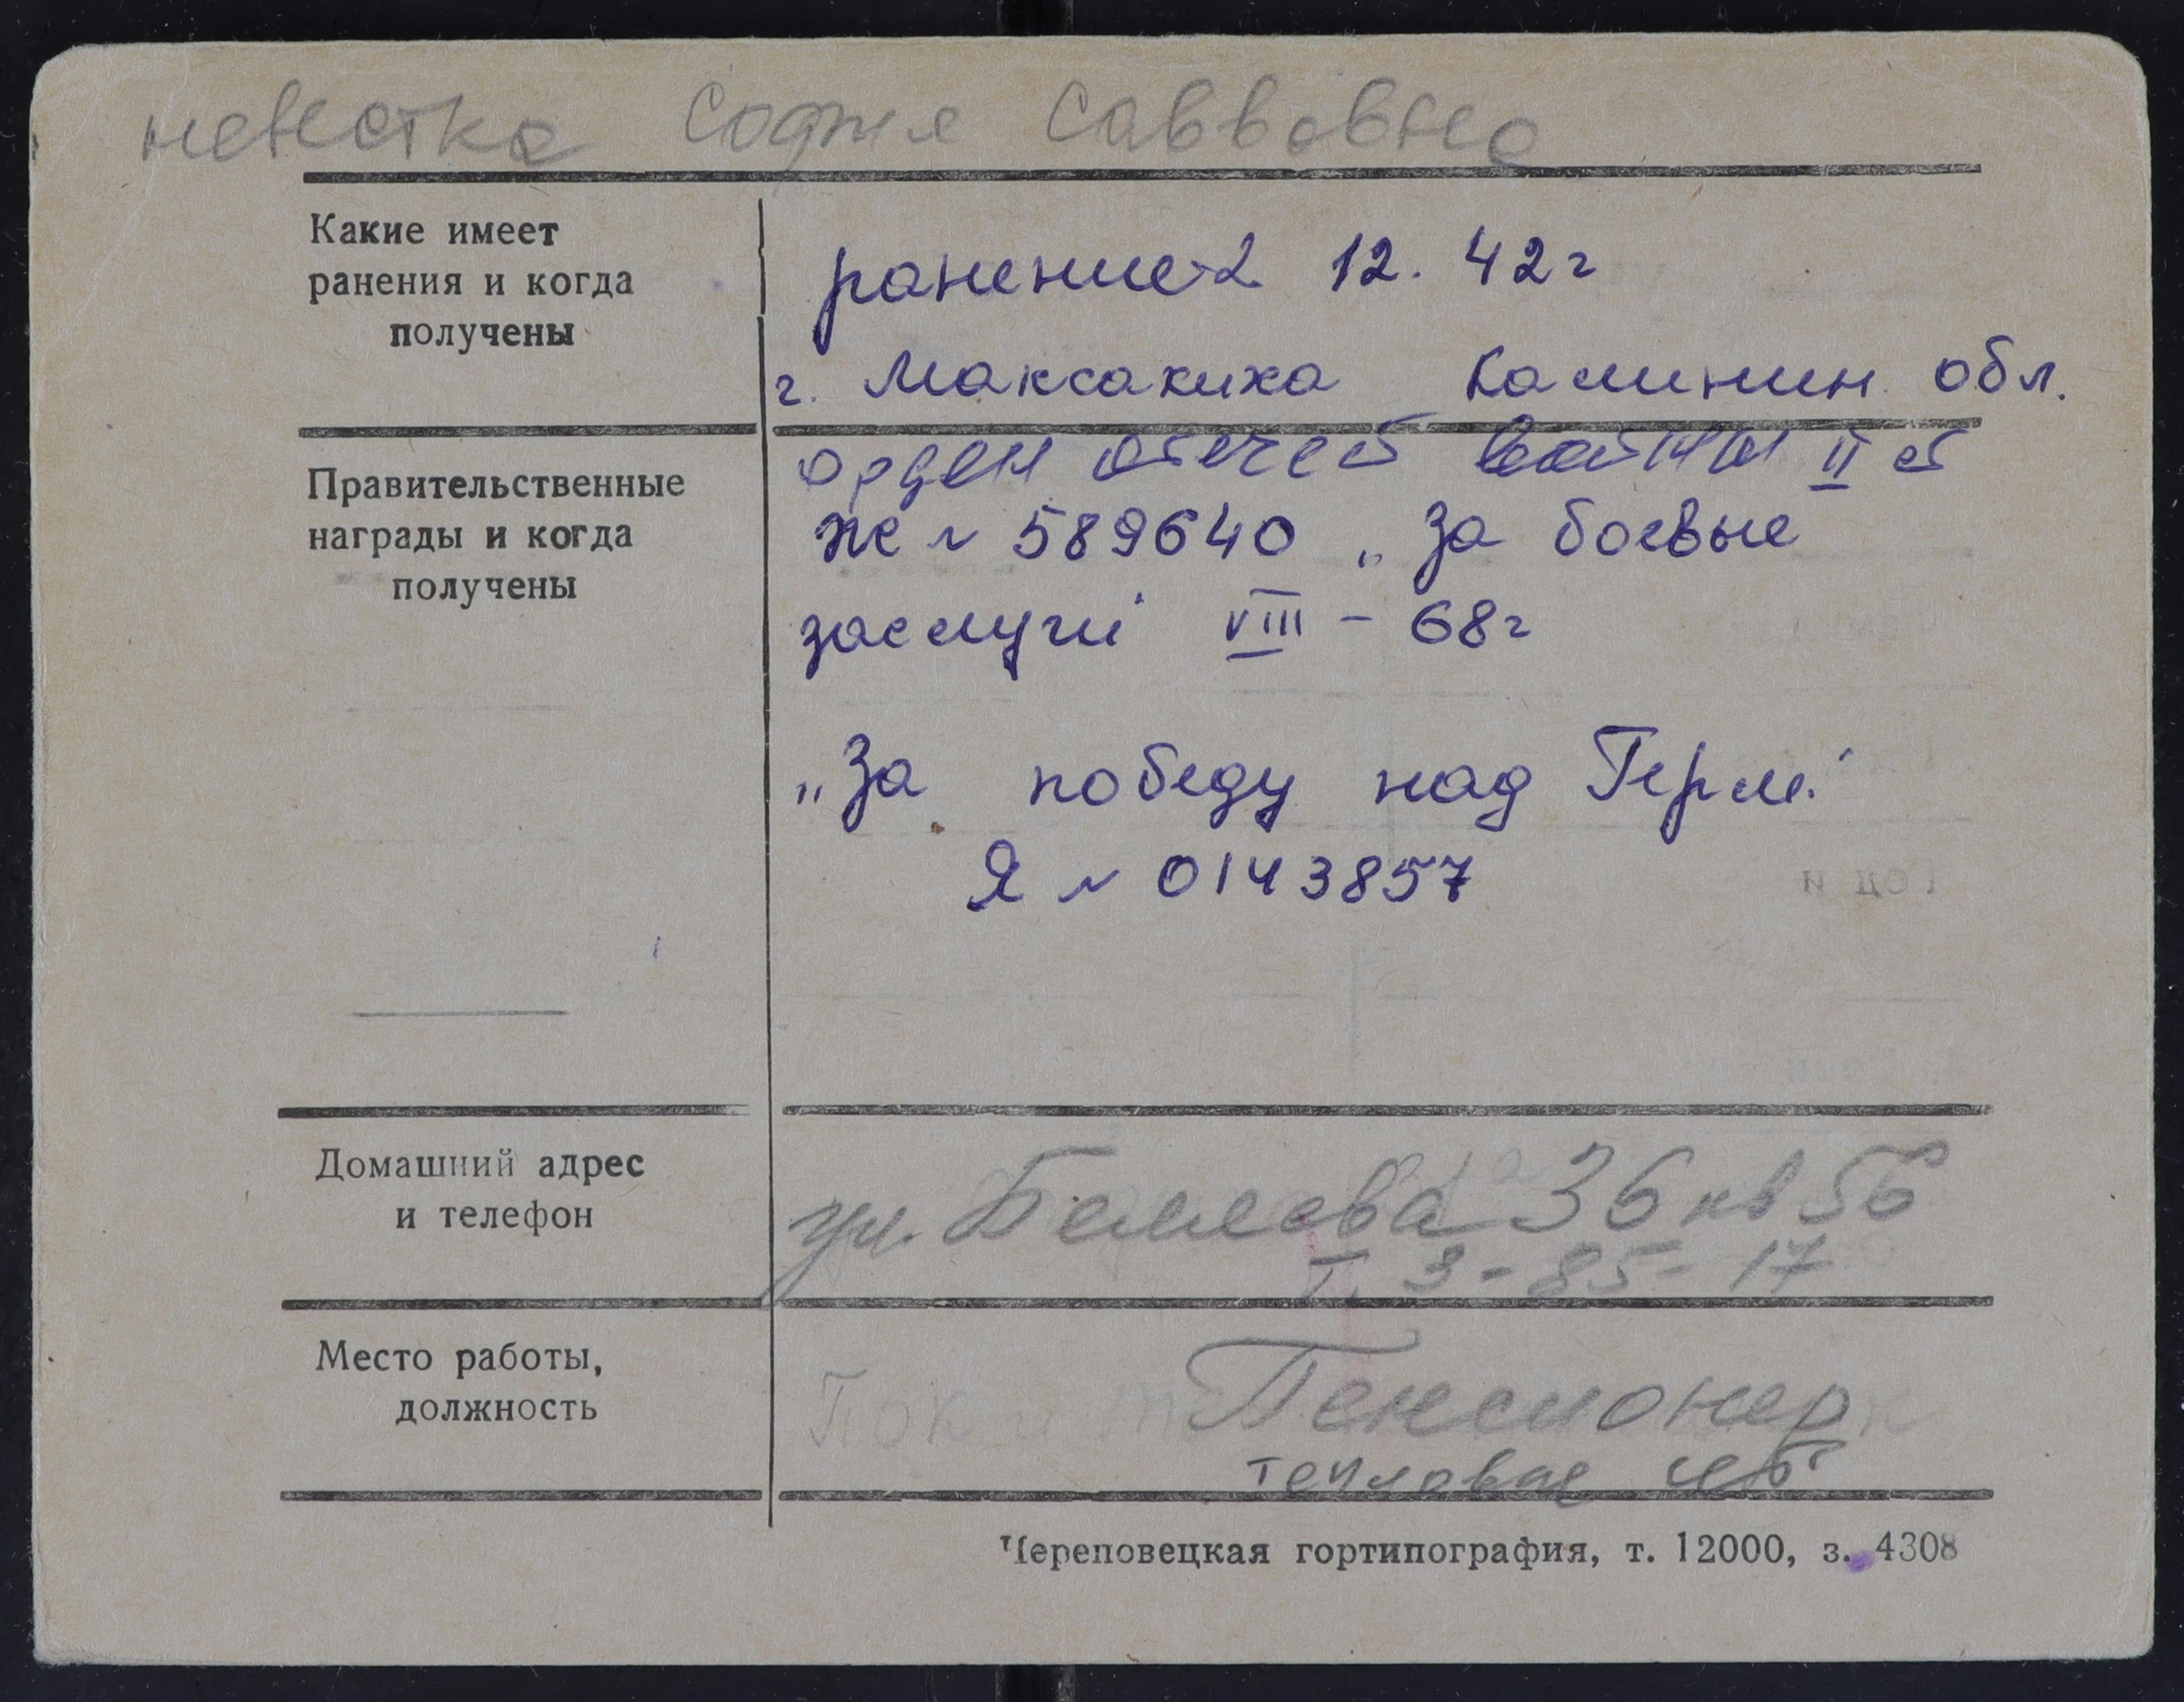 невестка София Саввовна
Какие имеет
ранения и когда
получены
ранение-2 12. 42г
г. Максакиха Калинин. обл.
Правительственные
награды и когда
получены
орден отечест войны II ст
же № 589640 „За боевые
заслуги" VIII - 68г
„За победу над Герм."
Я № 0143857
Домашний адрес
и телефон
ул. Беляева 36 кв 56
т. 3-85-17
Место работы,
должность
Пенсионер
тепловые
Череповецкая гортипография, т. 12000, з. 4308